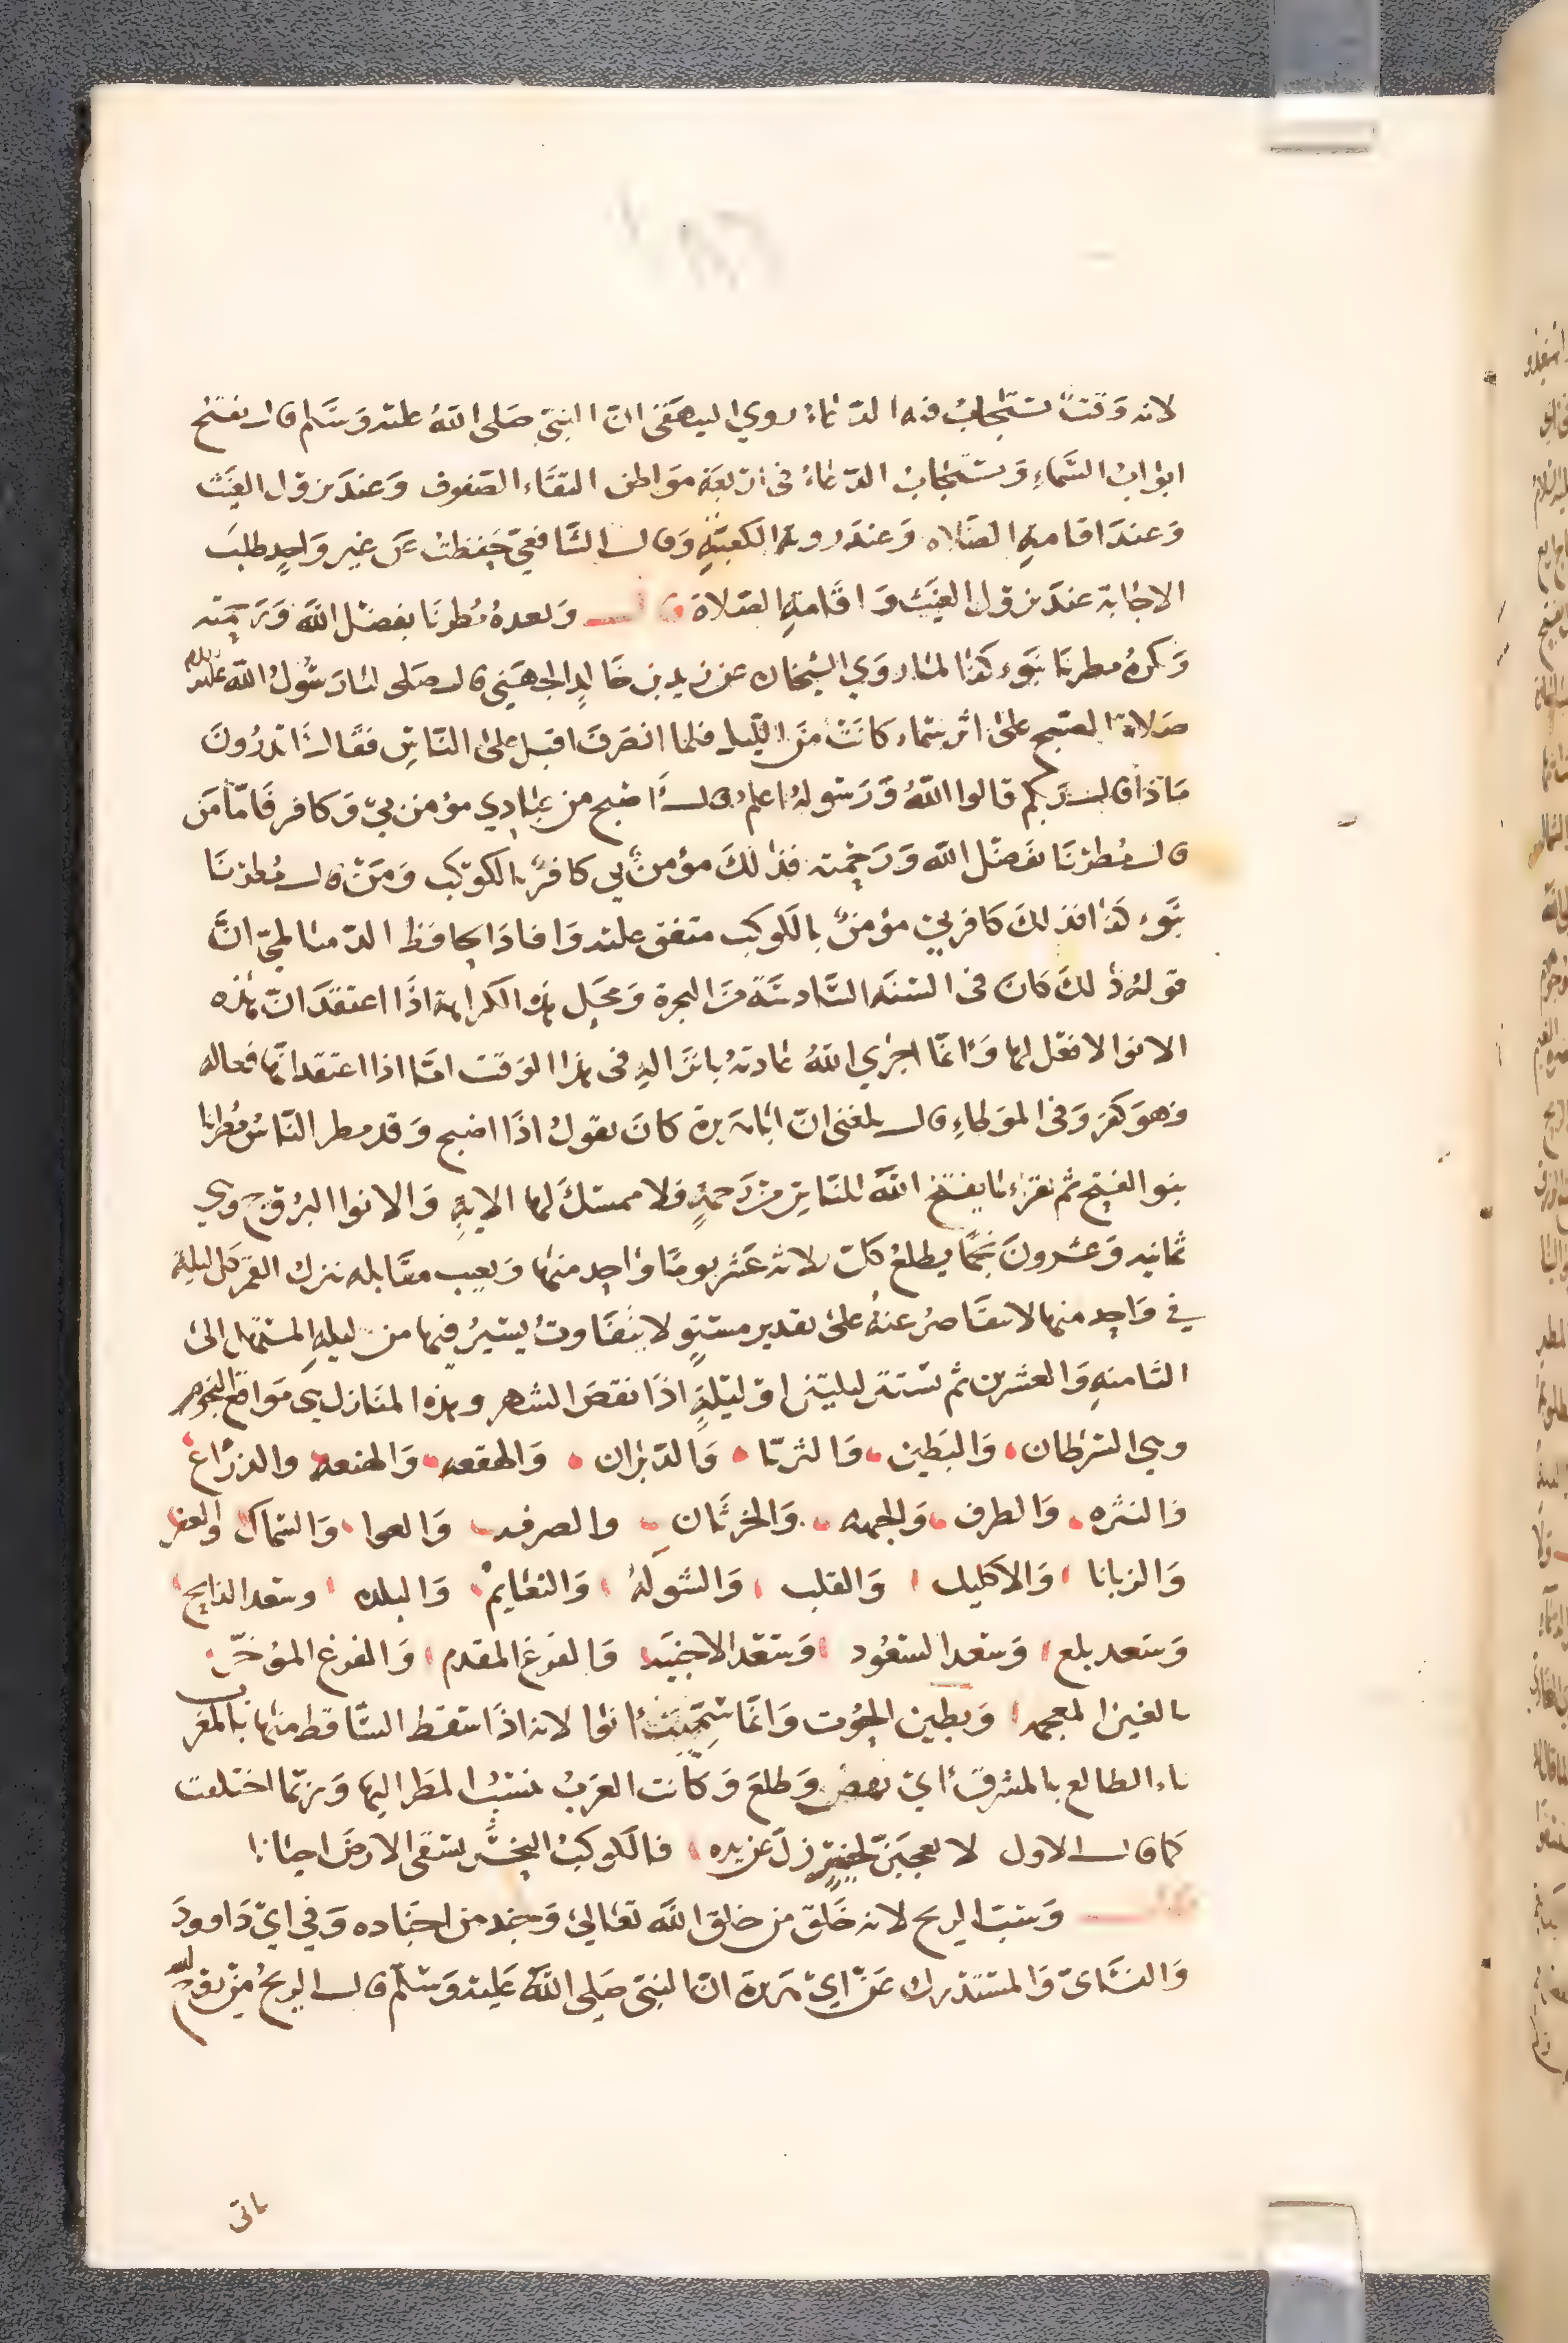 لانه وقت يستجاب فيه الدعاء روي البيهقي ان النبي صلى الله عليه وسلم قال يفتح
ابواب السماء ويستجاب الدعاء في اربعة مواطن التقاء الصفوف وعند نزول الغيث
وعند اقامة الصلاه وعند روية الكعبة وقال الشافعي حفظت عن غير واحد طلب
الاجابة عند نزول الغيث واقامة الصلاة قال وبعده مطرنا بفضل الله ورحمته
وكره مطرنا بنوء كذا لما روي الشيخان عن زيد بن خالد الجهني قال صلى لنا رسول الله عليه السلام
صلاة الصبح على اثر سماء كانت من الليل فلما انصرف اقبل على الناس فقال اتدرون
ماذا قال ربكم قالوا الله ورسوله اعلم قال اصبح من عبادي مؤمن بي وكافر فاما من
قال مطرنا بفضل الله ورحمته فذلك مؤمن بي كافر بالكوكب ومن قال مطرنا
بنوء كذا فذلك كافر بي مؤمن بالكوكب متفق عليه وافاد الحافظ الدمياطي ان
قوله ذلك كان في السنة السادسة من الهجرة ومحل هذه الكراهة اذا اعتقد ان هذه
الانوا لا فعل لها وانما اجري الله عادته بانزاله في هذا الوقت اما اذا اعتقد انها فعاله
فهو كفر وفي الموطاء قال بلغني ان اباهريرة كان يقول اذا اصبح وقد مطر الناس مطرنا
بنوا الفتح ثم يقراء ما يفتح الله للناس من رحمة فلا ممسك لها الاية والانوا البروج وهي
ثمانيه وعشرون نجما يطلع كل ثلاثه عشر يوما واحد منها ويغيب مقابله ينزل القمر كل ليلة
في واحد منها لا يتقاصر عنه على تقدير مستو لا يتفاوت يسير فيها من ليلة المستهل الى
الثامنة والعشرين ثم تستتر ليلتين او ليلة اذا نقص الشهر وهذه المنازل هي مواقع النجوم
وهي الشرطان والبطين والثريا والدبران والهقعه والهنعه والذراع
والنثره والطرف والجبهه والخرثان والصرفه والعوا والسماك والغفر
والزبانا والاكليل والقلب والشولة والنعايم والبلده وسعد الذابح
وسعد بلع وسعد السعود وسعد الاخبيه والفرغ المقدم والفرغ المؤخر
بالغين المعجمه وبطين الحوت وانما سميت انوا لانه اذا سقط الساقط منها بالمغرب
ناء الطالع بالمشرق اي نهض وطلع وكانت العرب تنسب المطر اليها وربما اختلفت
كما قال الاول لا تعجبن لخير زل عن يده فالكوكب النحس يسقى الارض احيانا
قال وسب الريح لانه خلق من خلق الله تعالى وجند من اجناده وفي ابي داوود
والنسائي والمستدرك عن ابي هريرة ان النبي صلى الله عليه وسلم قال الريح من روح الله
تاتي